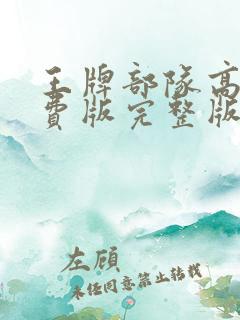 王牌部队高
费版完整版
左顾
未经同意禁止转载